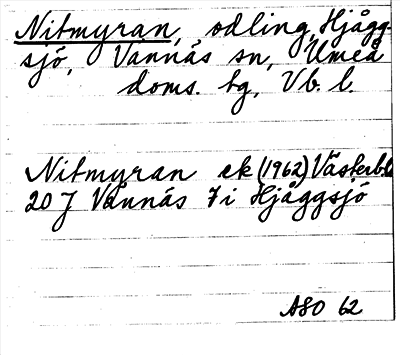 Nitmyran, odling, Hjågg-
sjö, Vännäs sn, Umeå
doms. tg, Vb. l.
Nitmyran ek (1962) Västerb.l
20 J Vännäs 7i Hjåggsjö
ASO 62